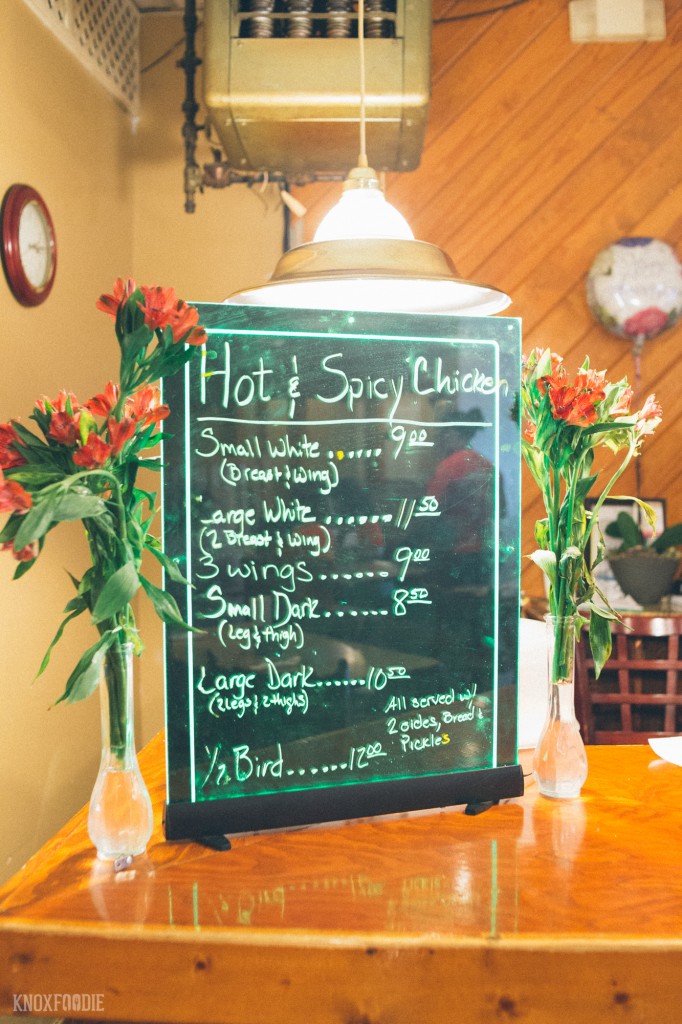 Hot & Spicy Chicken
Small White ....... 9.00
(Breast & Wing)
Large White ....... 11.50
(2 Breast & Wing)
3 Wings ...... 9.00
Small Dark ....... 8.50
(Leg & Thigh)
Large Dark ...... 10.50
(2 Legs & 2 Thighs)
All served w/
2 sides, Bread &
Pickles
1/2 Bird ....... 12.00
KNOXFOODIE